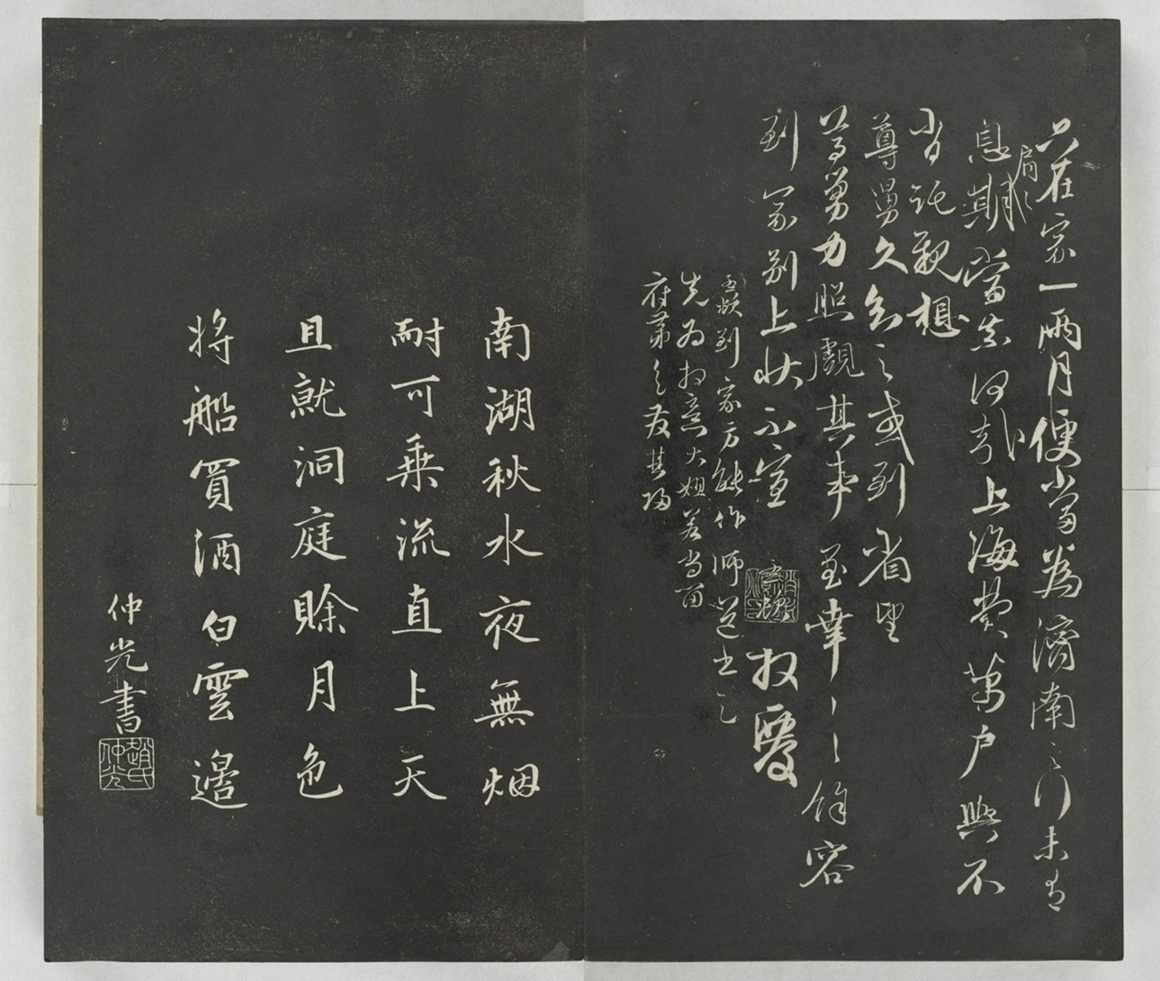 只在家一兩月便當為濟南之行未有
息肩之期當如何哉上海費萬戶與不
肖託親想
尊舅久知之或到省里
尊舅力照覷其事至幸至幸餘容
到家別上狀不宣
拜覆
到家方能作師書
先為拜意大姐若當
府第
南湖秋水夜無烟
耐可乘流直上天
且就洞庭賒月色
將船買酒白雲邊
仲光書
趙氏仲光